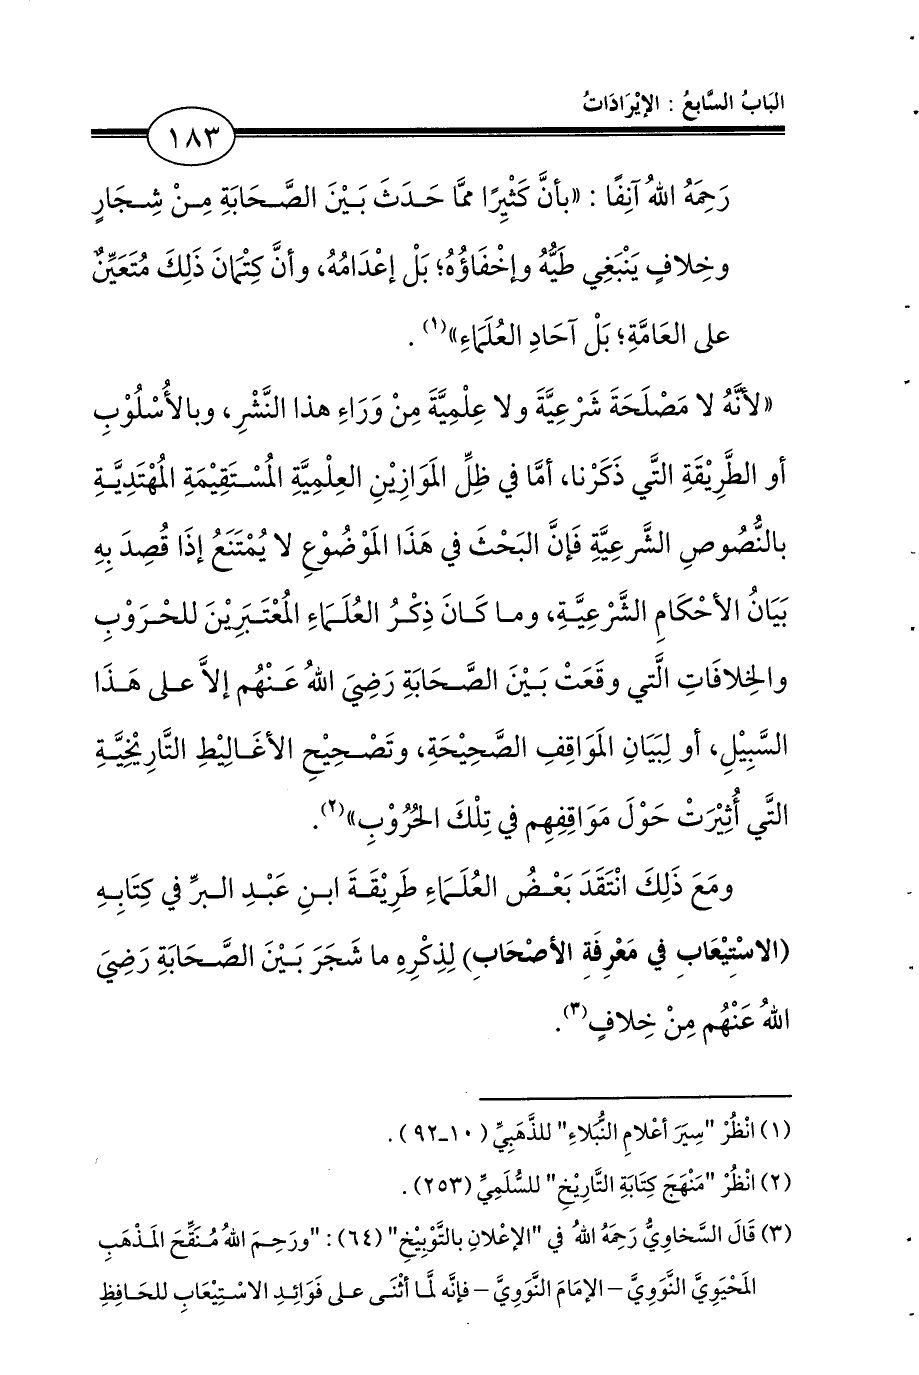 البَابُ السَّابعُ : الإيْرَادَاتُ
١٨٣
رَحِمَهُ اللهُ آنِفًا : «بأنَّ كَثيْرًا ممَّا حَدَثَ بَيْنَ الصَّحَابَةِ مِنْ شِجَارٍ
وخِلافٍ يَنْبَغِي طَيُّهُ وإخْفَاؤُهُ؛ بَلْ إعْدَامُهُ، وأنَّ كِتْمَانَ ذَلِكَ مُتَعَيِّنٌ
على العَامَّةِ؛ بَلْ آحَادِ العُلَمَاءِ»(١) .
«لأنَّهُ لا مَصْلَحَةَ شَرْعِيَّةَ ولا عِلْمِيَّةَ مِنْ وَرَاءِ هذا النَّشْرِ، وبالأُسْلُوْبِ
أو الطَّرِيْقَةِ التَّي ذَكَرْنا، أمَّا في ظِلِّ المَوَازِيْنِ العِلْمِيَّةِ المُسْتَقِيْمَةِ المُهْتَدِيَّةِ
بالنُّصُوصِ الشَّرعِيَّةِ فَإنَّ البَحْثَ في هَذَا المَوْضُوْعِ لا يُمْتَنَعُ إذَا قُصِدَ بِهِ
بَيَانُ الأحْكَامِ الشَّرْعِيَّةِ، وما كَانَ ذِكْرُ العُلَمَاءِ المُعْتَبَرِيْنَ للحْرَوْبِ
والخِلافَاتِ الَّتي وقَعَتْ بَيْنَ الصَّحَابَةِ رَضِيَ اللهُ عَنْهُم إلاَّ على هَذَا
السَّبِيْلِ، أو لِبَيَانِ المَوَاقِفِ الصَّحِيْحَةِ، وتَصْحِيْحِ الأغَالِيْطِ التَّارِيْخِيَّةِ
التَّي أُثِيْرَتْ حَوْلَ مَوَاقِفِهِم في تِلْكَ الحُرُوْبِ»(٢).
ومَعَ ذَلِكَ انْتَقَدَ بَعْضُ العُلَمَاءِ طَرِيْقَةَ ابنِ عَبْدِ البرِّ في كِتَابِهِ
(الاسْتِيْعَابِ في مَعْرِفَةِ الأصْحَابِ) لِذِكْرِهِ ما شَجَرَ بَيْنَ الصَّحَابَةِ رَضِيَ
اللهُ عَنْهُم مِنْ خِلافٍ(٣).
(١) انْظُرْ "سِيَرَ أعْلامِ النُّبَلاءِ" للذَّهَبِيِّ (١٠-٩٢) .
(٢) انْظُرْ "مَنْهَجَ كِتَابَةِ التَّارِيْخِ" للسُّلَمِيِّ (٢٥٣) .
(٣) قَالَ السَّخاوِيُّ رَحِمَهُ اللهُ في "الإعْلانِ بالتَّوْبِيْخِ" (٦٤): "ورَحِمَ اللهُ مُنَقِّحَ المَذْهَبِ
المَحْيَوِيَّ النَّوَوِيَّ – الإمَامَ النَّوَوِيَّ – فإنَّه لمَّا أثْنَى على فَوَائِدِ الاسْتِيْعَابِ للحَافِظِ